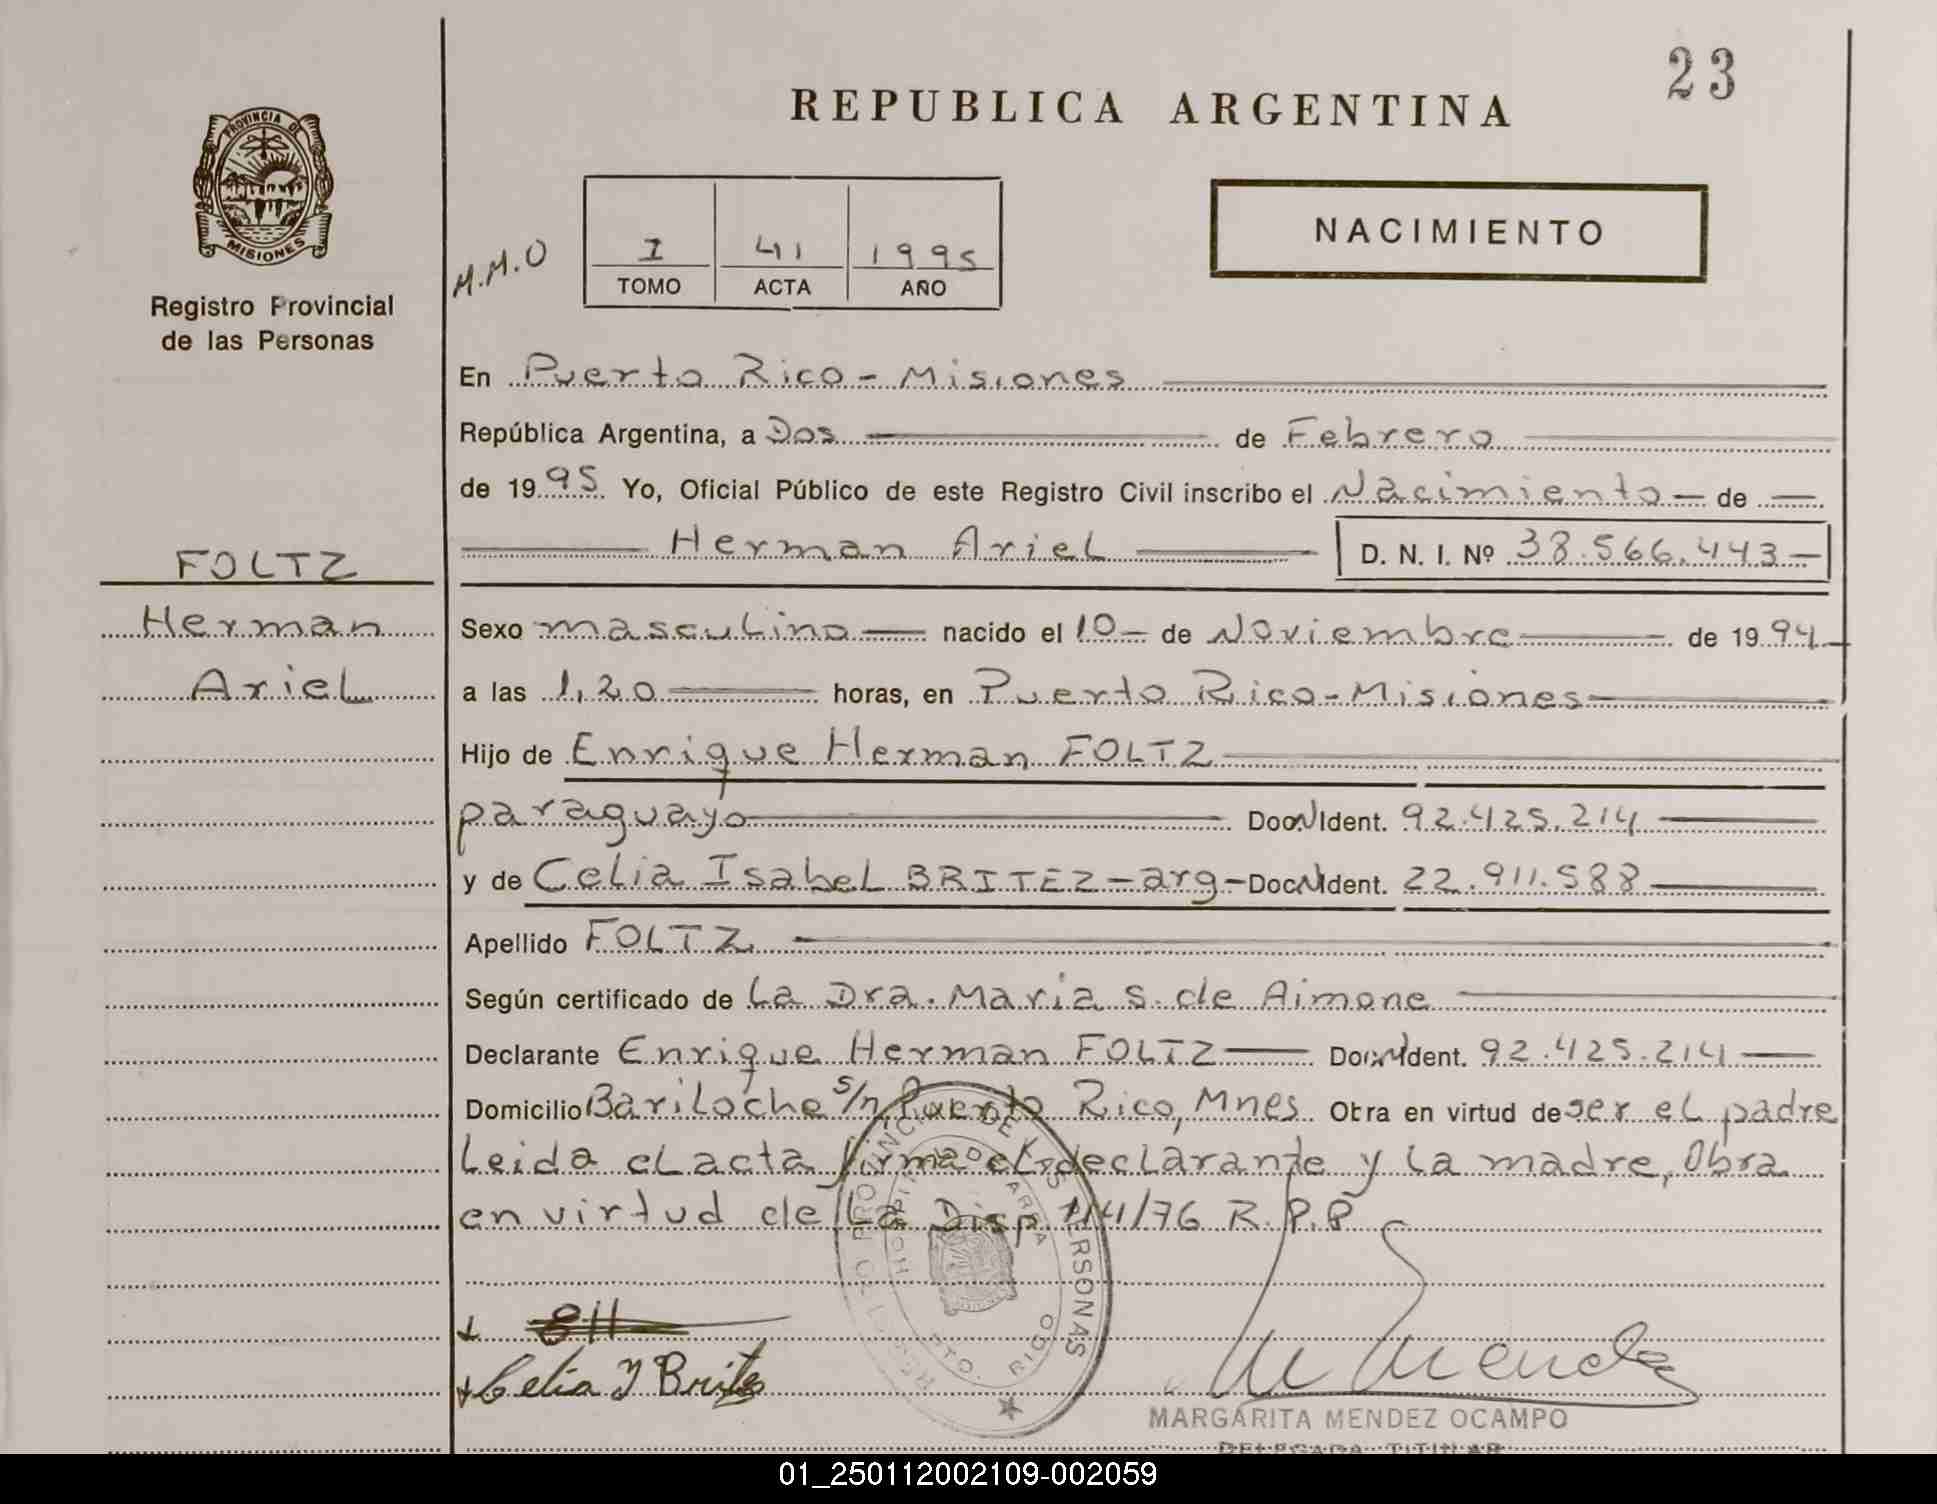 23
REPUBLICA ARGENTINA
PROVINCIA DE
MISIONES
Registro Provincial
de las Personas
M.M.O
I 41 1995
TOMO ACTA AÑO
NACIMIENTO
En Puerto Rico - Misiones
República Argentina, a Dos de Febrero
de 1995 Yo, Oficial Público de este Registro Civil inscribo el Nacimiento de
Herman Ariel D. N. I. Nº 38.566.443
FOLTZ
Herman
Ariel
Sexo masculino nacido el 10 de Noviembre de 1994
a las 1,20 horas, en Puerto Rico - Misiones
Hijo de Enrique Herman FOLTZ
paraguayo Doc. N Ident. 92.425.214
y de Celia Isabel BRITEZ - arg - Doc. N Ident. 22.911.588
Apellido FOLTZ
Según certificado de La Dra. Maria S. de Aimone
Declarante Enrique Herman FOLTZ Doc. N Ident. 92.425.214
Domicilio Bariloche s/n Puerto Rico, Mnes Obra en virtud de ser el padre
Leida el acta firma el declarante y la madre, Obra
en virtud de la Disp 14/76 R.P.P
PERSONAS
PTO. RICO
Celia Y Britez
M Mendez
MARGARITA MENDEZ OCAMPO
DELEGADA TITULAR
01_250112002109-002059